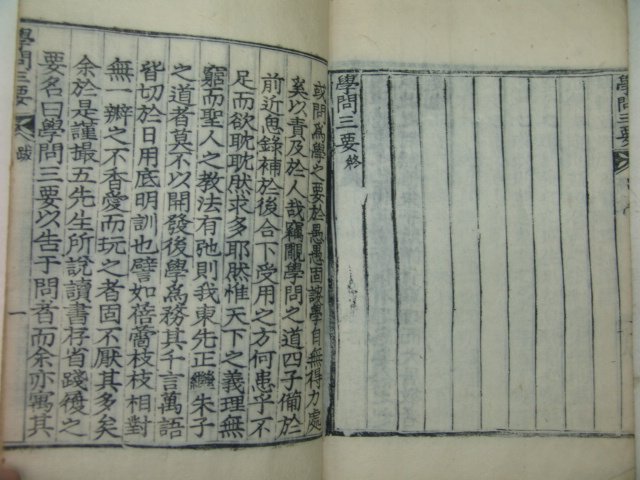 學問三要
學問三要終
或問爲學之要於愚愚固謏學自無得力處
奚以責及於人哉竊覵學問之道四子備於
前近思錄補於後合下受用之方何患乎不
足而欲耽耽然求多耶然惟天下之義理無
窮而聖人之教法有弛則我東先正繼朱子
之道者莫不以開發後學爲務其千言萬語
皆切於日用底明訓也譬如蓓蕾枝枝相對
無一辨之不香愛而玩之者固不厭其多矣
余於是謹撮五先生所說讀書存省踐履之
要名曰學問三要以告于問者而余亦寓其
學問三要 跋 一